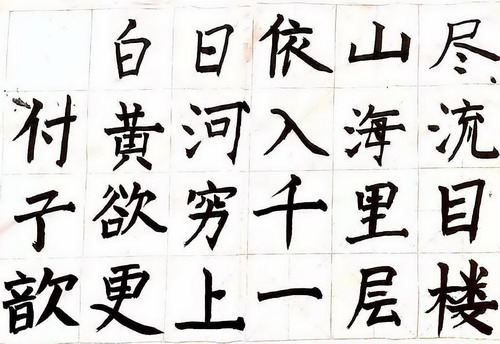 白日依山尽
黄河入海流
欲穷千里目
更上一层楼
付子歆